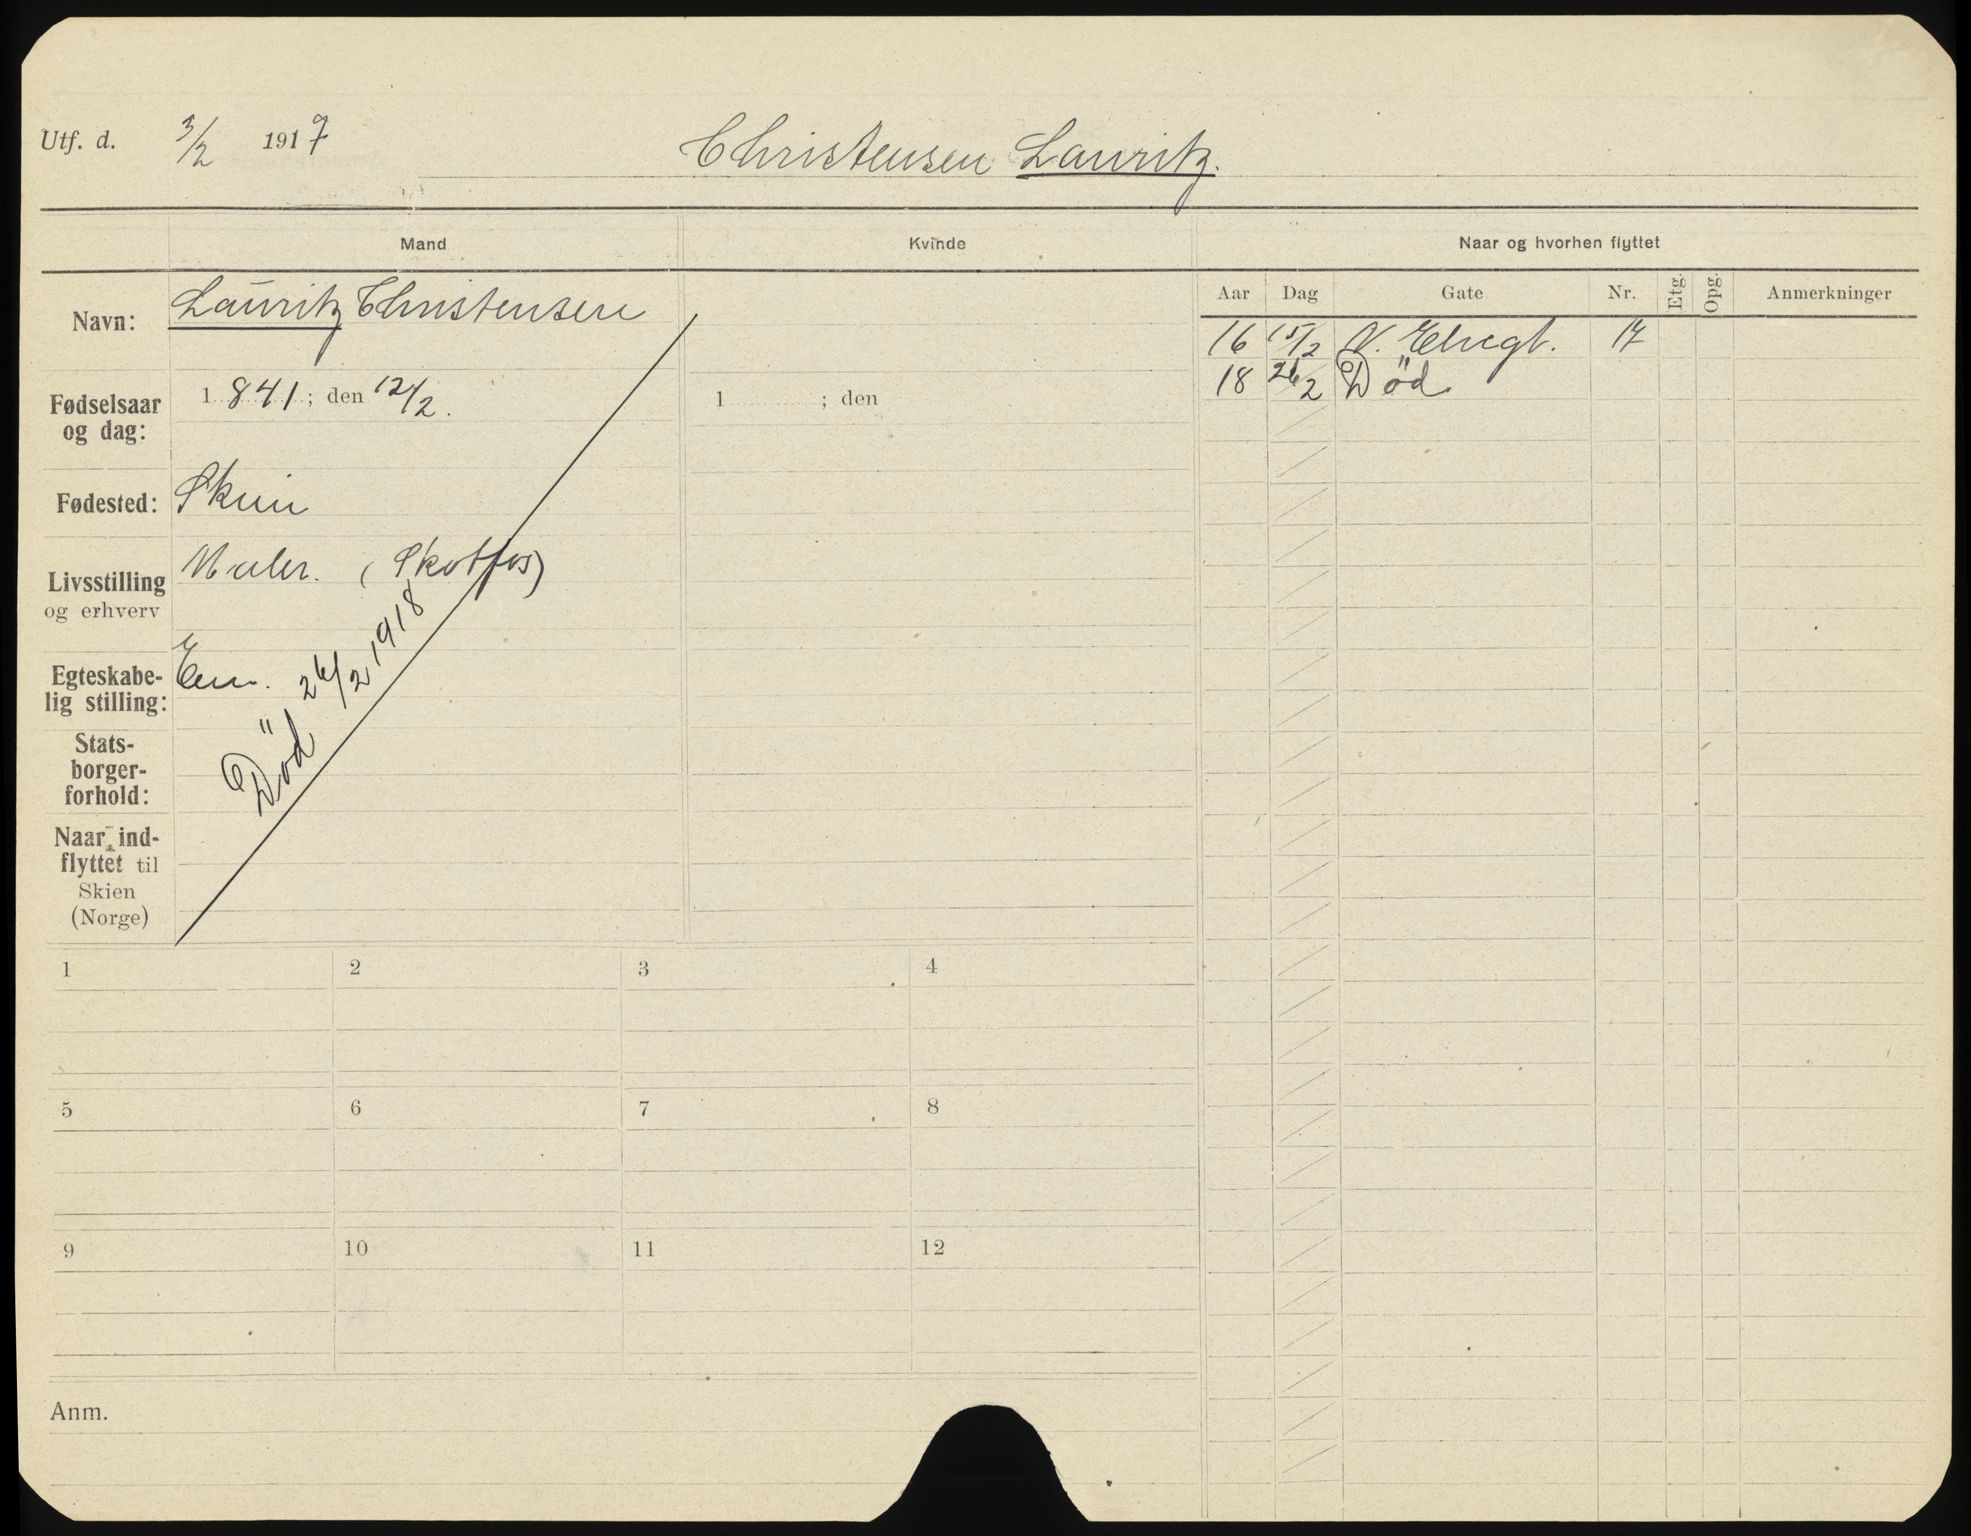 Utf. d. 3/2 1917 Christensen Lauritz.
Mand Kvinde Naar og hvorhen flyttet
Navn: Lauritz Christensen
Aar Dag Gate Nr. Etg. Opg. Anmerkninger
16 15/2 N. Elvegt. 17
18 26/2 Död
Fødselsaar og dag: 1841; den 12/2. 1 ; den
Fødested: Skien
Livsstilling og erhverv Maler. (Skotfos)
Egteskabe-
lig stilling: Em.
Död 26/2 1918
Stats-
borger-
forhold:
Naar ind-
flyttet til
Skien
(Norge)
1 2 3 4
5 6 7 8
9 10 11 12
Anm.